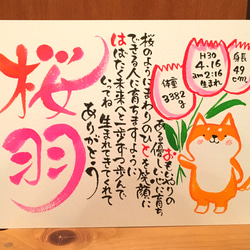 桜羽
身長
49
cm
H30
4.16
am2:16
生まれ
体重
3382
g
おもいやりの
ある優しい心に育ち
桜のようにまわりのひとを笑顔に
できる人に育ちますように
はばたく未来へと一歩ずつ歩んで
いってね 生まれてきてくれて
ありがとう